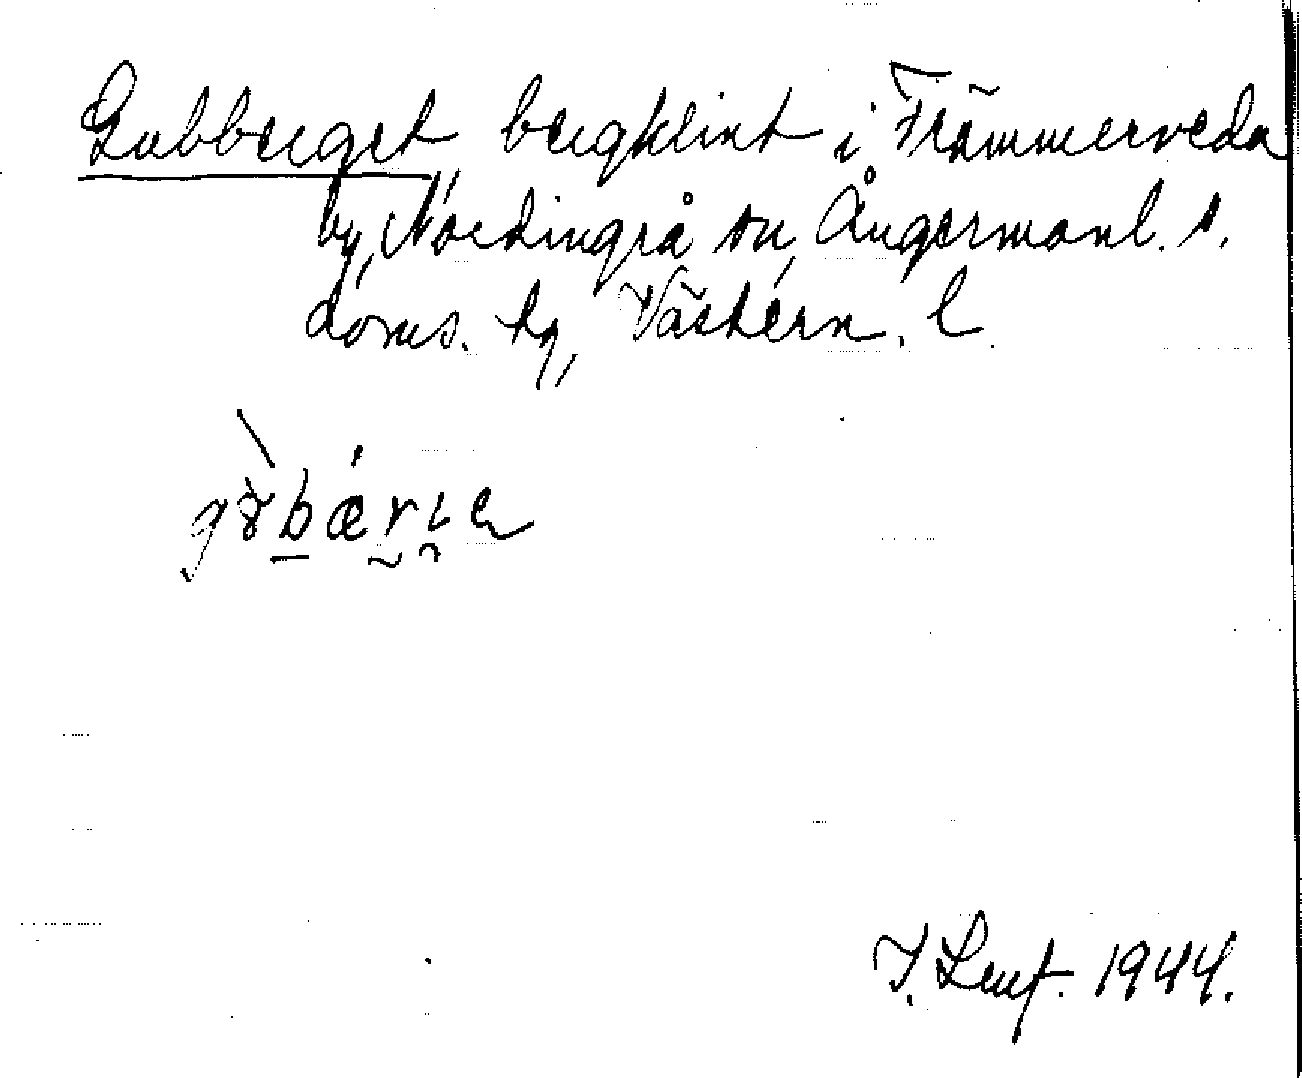 Gubberget, bergklint i Främmerveda
by, Nordingrå sn, Ångermanl. s.
doms. tg, Västern. l.
J. Lenf. 1944.